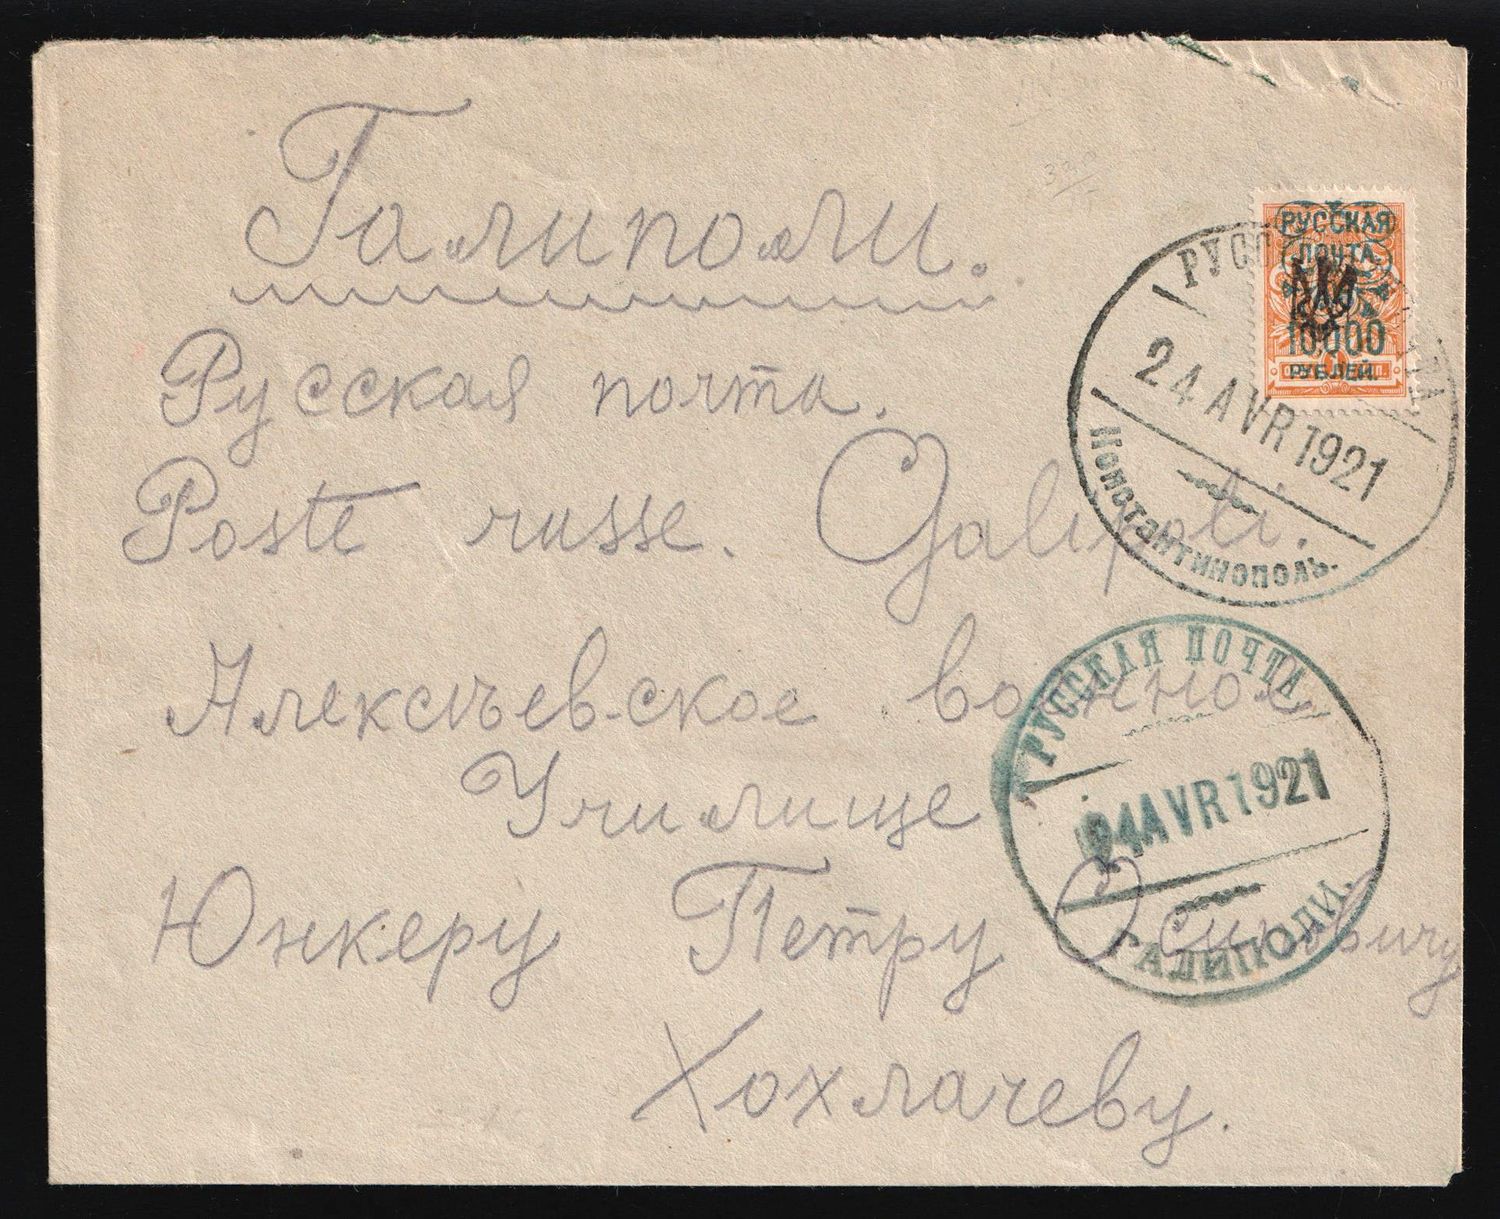 Галиполи.
Русская почта.
Poste russe. Galipoli.
Алексѣевское военное
Училище
Юнкеру Петру Осиповичу
Хохлачеву.
РУССКАЯ
ПОЧТА
10000
РУБЛЕЙ.
24 AVR 1921
Константинополь.
РУССКАЯ ПОЧТА
24 AVR 1921
ГАЛИПОЛИ.